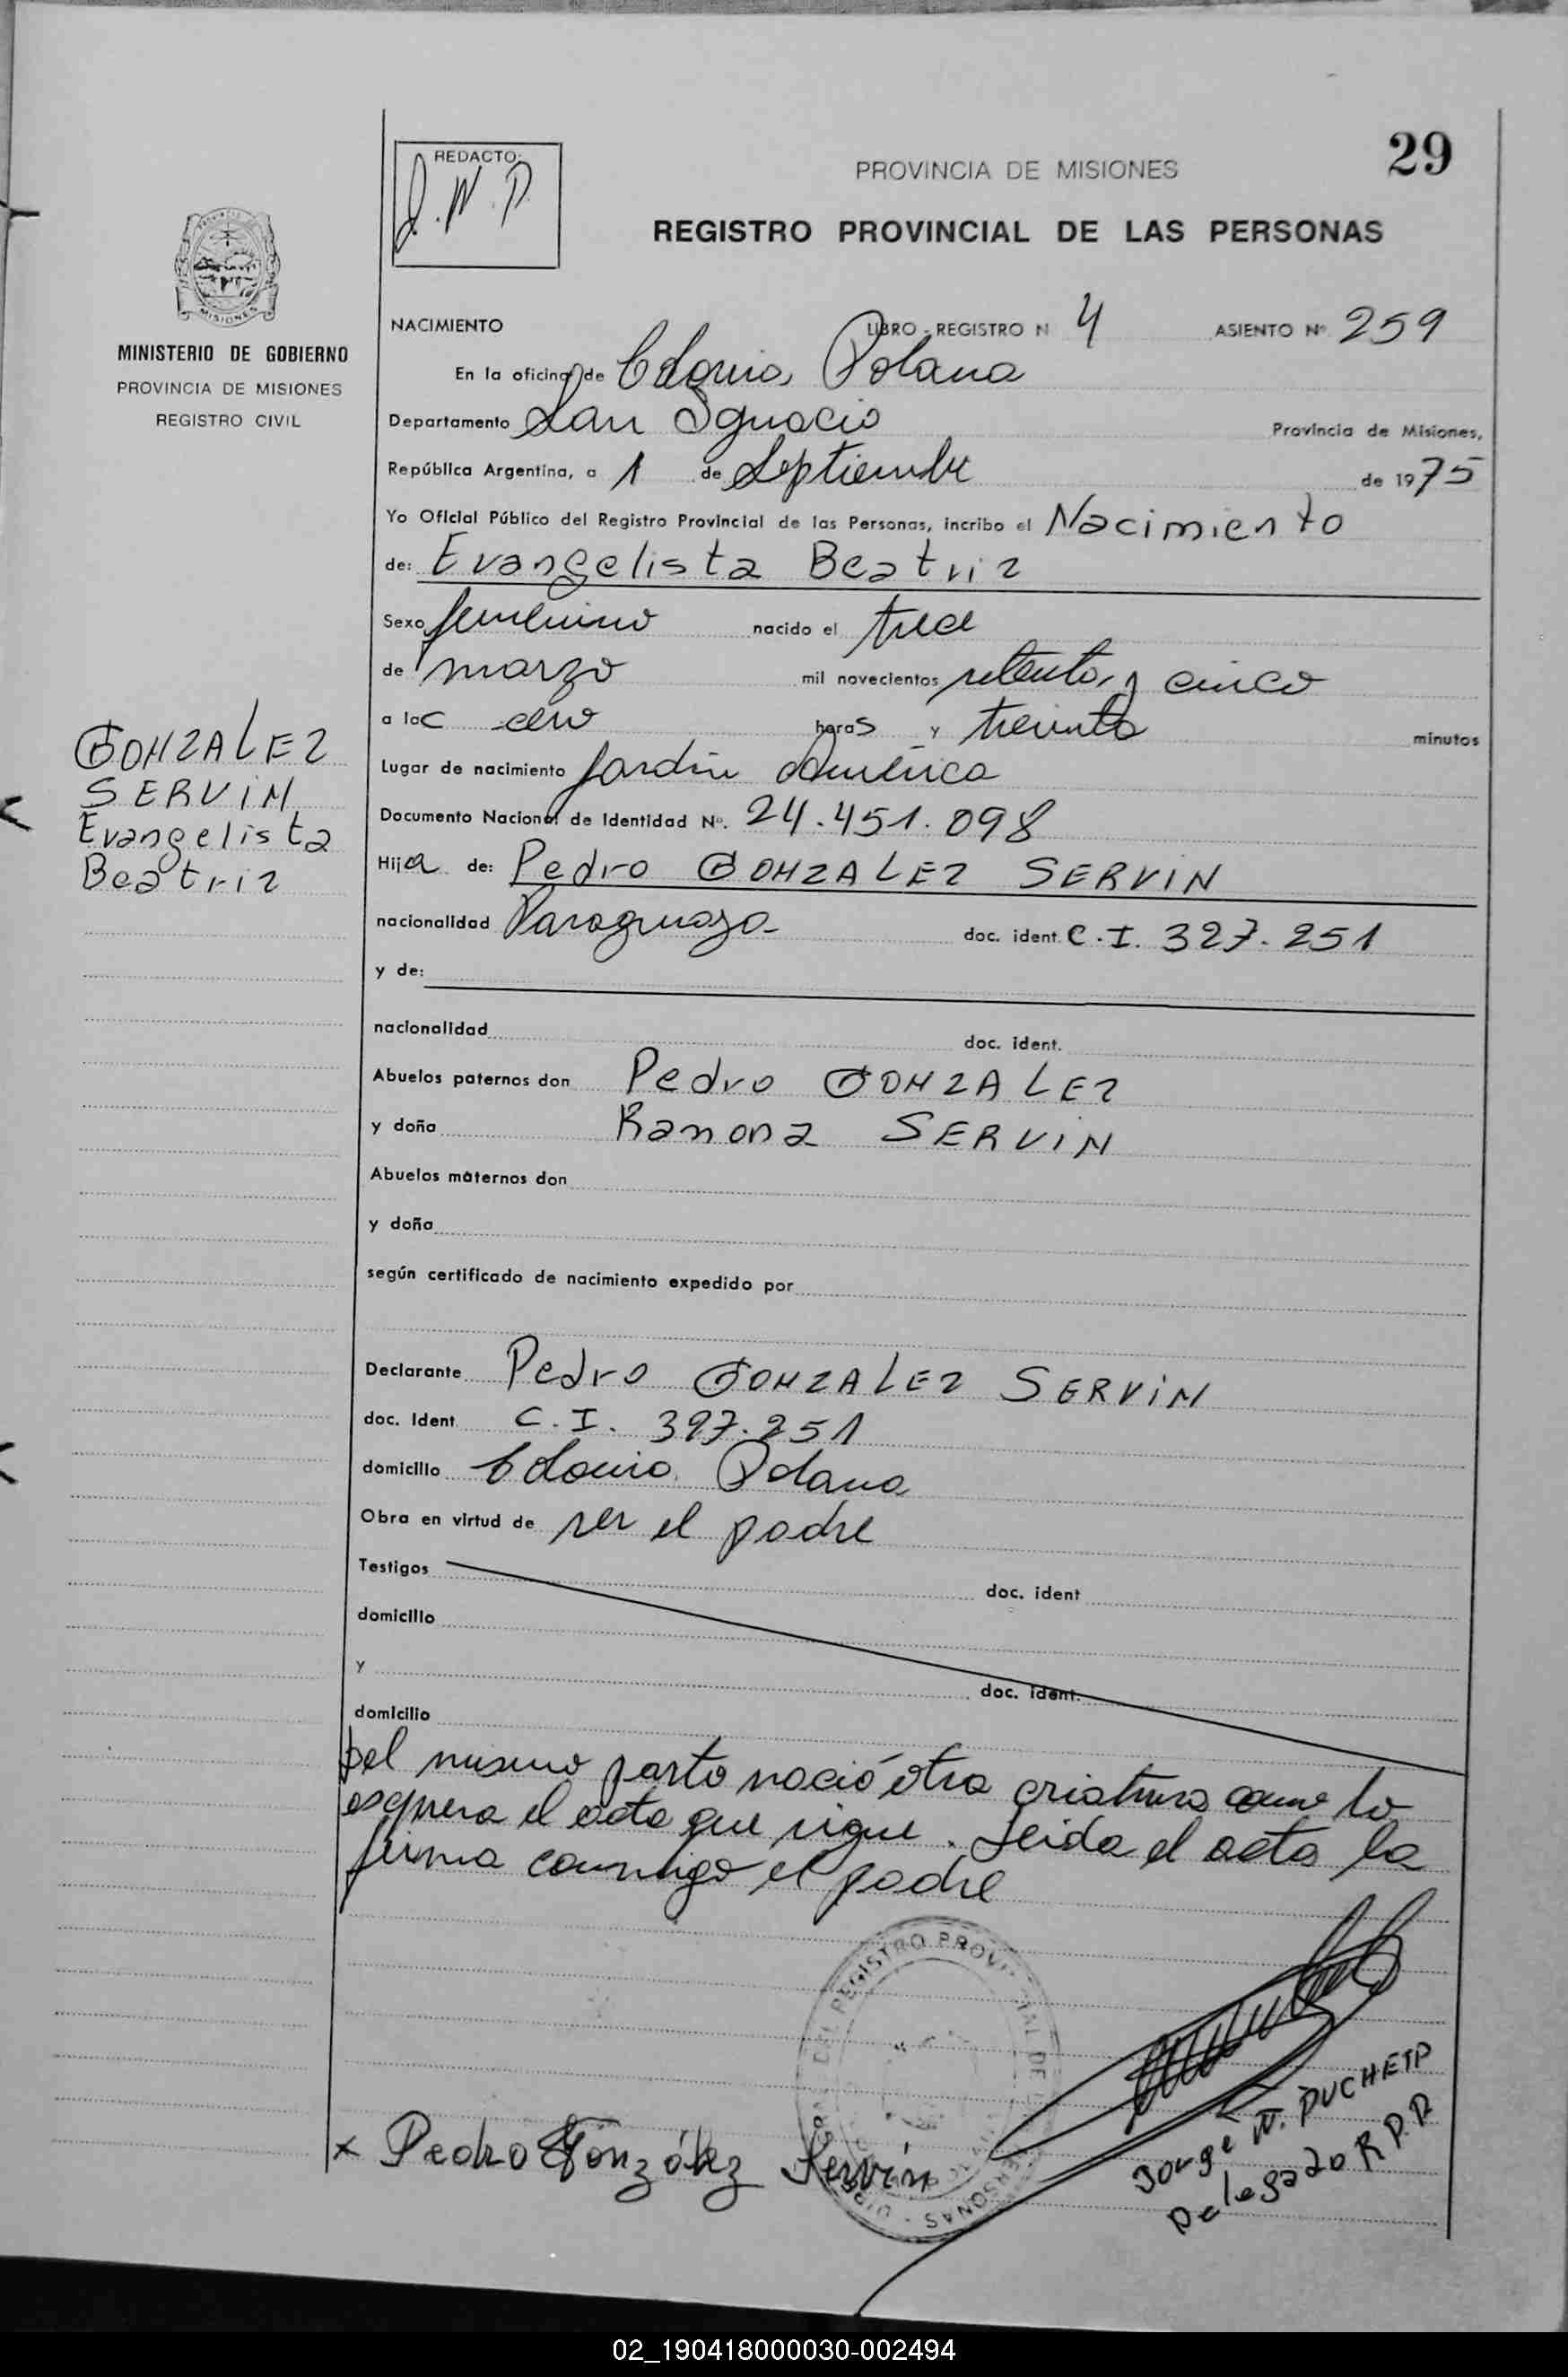 29
REDACTO:
J. N. P.
PROVINCIA DE MISIONES
REGISTRO PROVINCIAL DE LAS PERSONAS
MISIONES
MINISTERIO DE GOBIERNO
PROVINCIA DE MISIONES
REGISTRO CIVIL
NACIMIENTO LIBRO - REGISTRO N 4 ASIENTO Nº 259
En la oficina de Colonia Polana
Departamento San Ignacio Provincia de Misiones,
República Argentina, a 1 de Septiembre de 1975
Yo Oficial Público del Registro Provincial de las Personas, incribo el Nacimiento
de: Evangelista Beatriz
Sexo femenino nacido el trece
de marzo mil novecientos setenta y cinco
a la c cero horas y treinta minutos
GONZALEZ
SERVIN
Evangelista
Beatriz
Lugar de nacimiento Jardin America
Documento Nacional de Identidad Nº. 24.451.098
Hija de: Pedro GONZALEZ SERVIN
nacionalidad Paraguaya doc. ident. C.I. 327.251
y de:
nacionalidad doc. ident.
Abuelos paternos don Pedro GONZALEZ
y doña Ramona SERVIN
Abuelos maternos don
y doña
según certificado de nacimiento expedido por
Declarante Pedro GONZALEZ SERVIN
doc. Ident. C.I. 397.251
domicilio Colonia Polana
Obra en virtud de ser el padre
Testigos doc. ident
domicilio
y doc. ident.
domicilio
Del mismo parto nació otra criatura como lo
espresa el acta que sigue. Leida el acta la
firma conmigo el padre
REGISTRO PROVINCIAL DE PERSONAS
x Pedro González Servín
Jorge N. DUCHETD
Delegado R P.P.
02_190418000030-002494